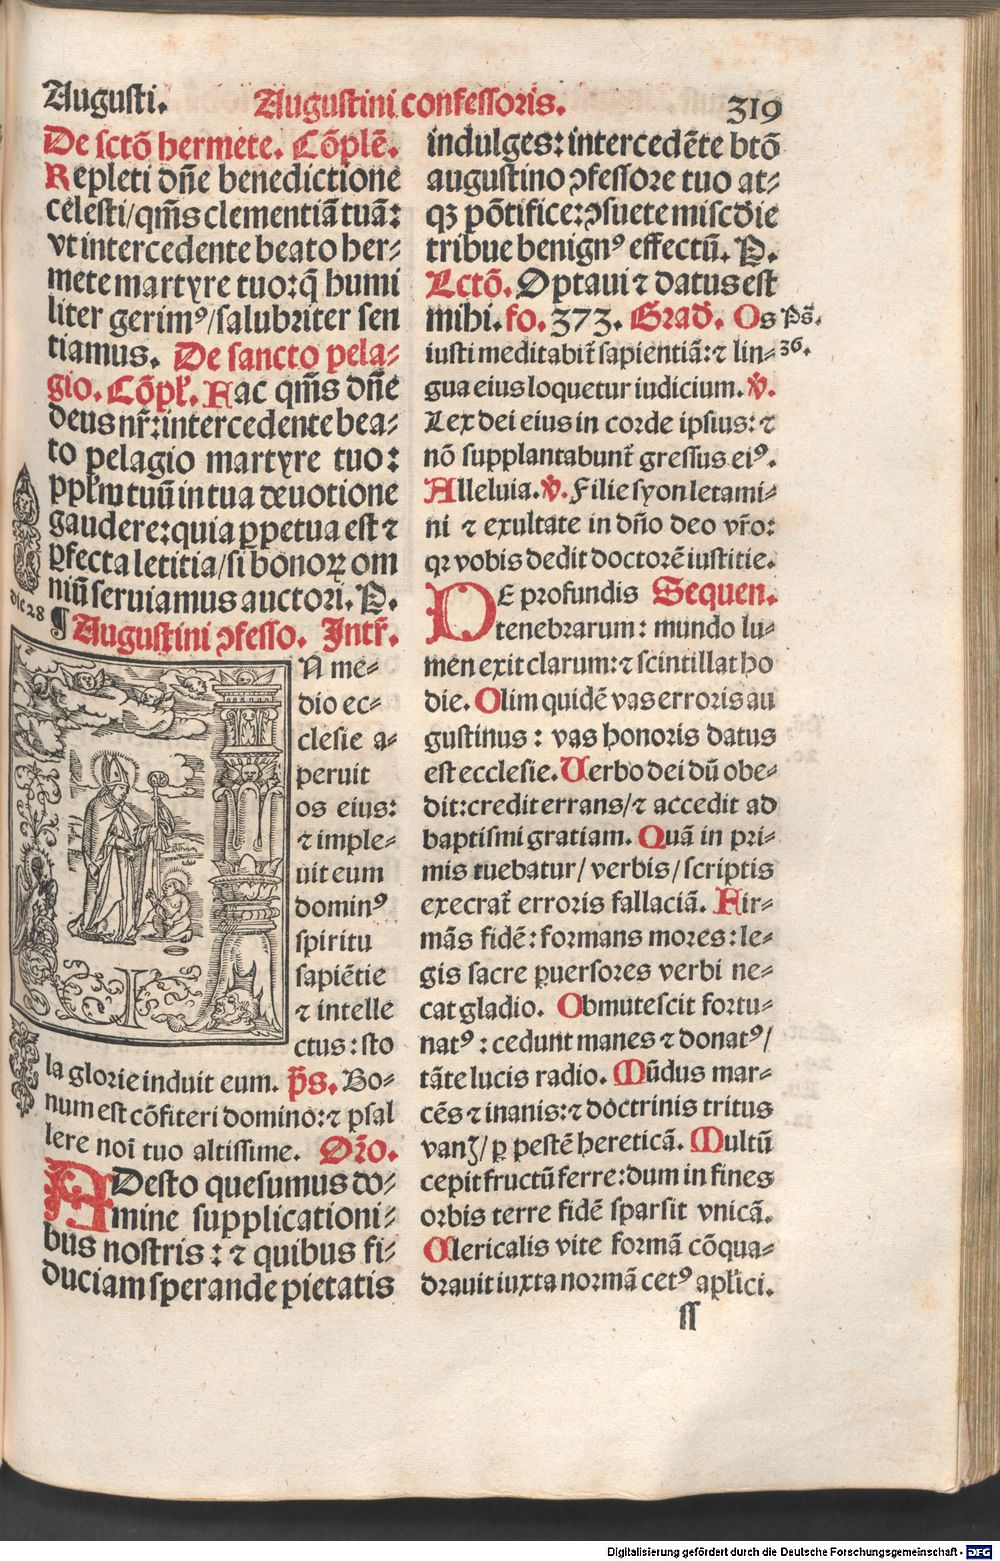 Augusti. Augustini confessoris. 319
De sctō hermete. Cōplē.
Repleti dñe benedictione
celesti/qm̄s clementiā tuā:
vt intercedente beato her⸗
mete martyre tuo:q̄ humi
liter gerimꝰ/salubriter sen
tiamus. De sancto pela⸗
gio. Cōpl'. Fac qm̄s dñe
deus nr̄:intercedente bea⸗
to pelagio martyre tuo:
ppl'm tuū in tua deuotione
gaudere:quia ꝑpetua est ⁊
ꝑfecta letitia/si bonoꝝ om
niū seruiamus auctori. P.
die 28
¶ Augustini ꝯfesso. Intr̄.
N me⸗
dio ec⸗
clesie a⸗
peruit
os eius:
⁊ imple⸗
uit eum
dominꝰ
spiritu
sapiētie
⁊ intelle
ctus:sto
la glorie induit eum. p̄s. Bo⸗
num est cōfiteri domino:⁊ psal
lere noī tuo altissime. Or̄o.
ADesto quesumus do⸗
mine supplicationi⸗
bus nostris: ⁊ quibus fi⸗
duciam sperande pietatis
indulges:intercedēte btō
augustino ꝯfessore tuo at⸗
qꝫ pōtifice:ꝯsuete miscd'ie
tribue benignꝰ effectū. P.
Lctō. Optaui ⁊ datus est
mihi. fo. 373. Grad'. Os
Ps̄.
36.
iusti meditabit̄ sapientiā:⁊ lin⸗
gua eius loquetur iudicium. v̄.
Lex dei eius in corde ipsius:⁊
nō supplantabunt̄ gressus eiꝰ.
Alleluia. v̄. Filie syon letami⸗
ni ⁊ exultate in dño deo vr̄o:
qꝛ vobis dedit doctorē iustitie.
DE profundis Sequen.
tenebrarum: mundo lu⸗
men exit clarum:⁊ scintillat ho
die. Olim quidē vas erroris au
gustinus: vas honoris datus
est ecclesie. Uerbo dei dū obe⸗
dit:credit errans/⁊ accedit ad
baptismi gratiam. Quā in pri⸗
mis tuebatur/ verbis/scriptis
execrat̄ erroris fallaciā. Fir⸗
mās fidē:formans mores:le⸗
gis sacre ꝑuersores verbi ne⸗
cat gladio. Obmutescit fortu⸗
natꝰ: cedunt manes ⁊ donatꝰ/
tāte lucis radio. Mūdus mar⸗
cēs ⁊ inanis:⁊ doctrinis tritus
vanꝫ/ ꝑ pestē hereticā. Multū
cepit fructū ferre:dum in fines
orbis terre fidē sparsit vnicā.
Clericalis vite formā cōqua⸗
drauit iuxta normā cetꝰ apl'ici.
ſſ
Digitalisierung gefördert durch die Deutsche Forschungsgemeinschaft - DFG